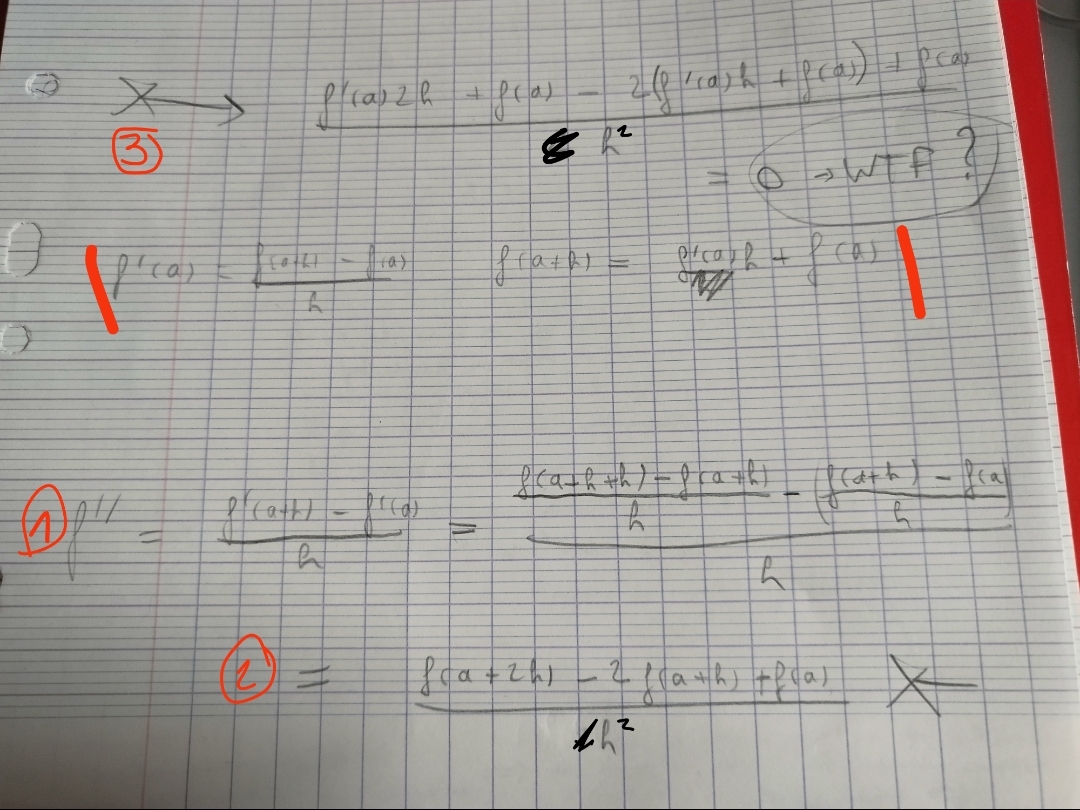 ③ → (f'(a)2h + f(a) - 2(f'(a)h + f(a)) + f(a)) / h²
= 0 → WTF ?
f'(a) = (f(a+h) - f(a)) / h    f(a+h) = f'(a)h + f(a)
① f'' = (f'(a+h) - f'(a)) / h = ((f(a+h+h) - f(a+h)) / h - (f(a+h) - f(a)) / h) / h
② = (f(a+2h) - 2f(a+h) + f(a)) / h²